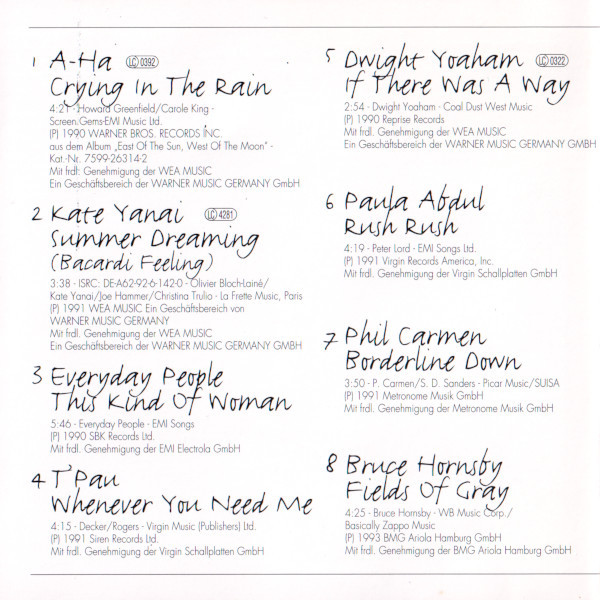 1 A-Ha LC 0392
Crying In The Rain
4:21 - Howard Greenfield/Carole King -
Screen.Gems-EMI Music Ltd.
(P) 1990 WARNER BROS. RECORDS INC.
aus dem Album „East Of The Sun, West Of The Moon" -
Kat.-Nr. 7599-26314-2
Mit frdl: Genehmigung der WEA MUSIC
Ein Geschäftsbereich der WARNER MUSIC GERMANY GmbH
2 Kate Yanai LC 4281
Summer Dreaming
(Bacardi Feeling)
3:38 - ISRC: DE-A62-92-6-142-0 - Olivier Bloch-Lainé/
Kate Yanai/Joe Hammer/Christina Trulio - La Frette Music, Paris
(P) 1991 WEA MUSIC Ein Geschäftsbereich von
WARNER MUSIC GERMANY
Mit frdl. Genehmigung der WEA MUSIC
Ein Geschäftsbereich der WARNER MUSIC GERMANY GMBH
3 Everyday People
This Kind Of Woman
5:46 - Everyday People - EMI Songs
(P) 1990 SBK Records Ltd.
Mit frdl. Genehmigung der EMI Electrola GmbH
4 T'Pau
Whenever You Need Me
4:15 - Decker/Rogers - Virgin Music (Publishers) Ltd.
(P) 1991 Siren Records Ltd.
Mit frdl. Genehmigung der Virgin Schallplatten GmbH
5 Dwight Yoaham LC 0322
If There Was A Way
2:54 - Dwight Yoaham - Coal Dust West Music
(P) 1990 Reprise Records
Mit frdl. Genehmigung der WEA MUSIC
Ein Geschäftsbereich der WARNER MUSIC GERMANY GMBH
6 Paula Abdul
Rush Rush
4:19 - Peter Lord - EMI Songs Ltd.
(P) 1991 Virgin Records America, Inc.
Mit frdl. Genehmigung der Virgin Schallplatten GmbH
7 Phil Carmen
Borderline Down
3:50 - P. Carmen/S. D. Sanders - Picar Music/SUISA
(P) 1991 Metronome Musik GmbH
Mit frdl. Genehmigung der Metronome Musik GmbH
8 Bruce Hornsby
Fields Of Gray
4:25 - Bruce Hornsby - WB Music Corp./
Basically Zappo Music
(P) 1993 BMG Ariola Hamburg GmbH
Mit frdl. Genehmigung der BMG Ariola Hamburg GmbH